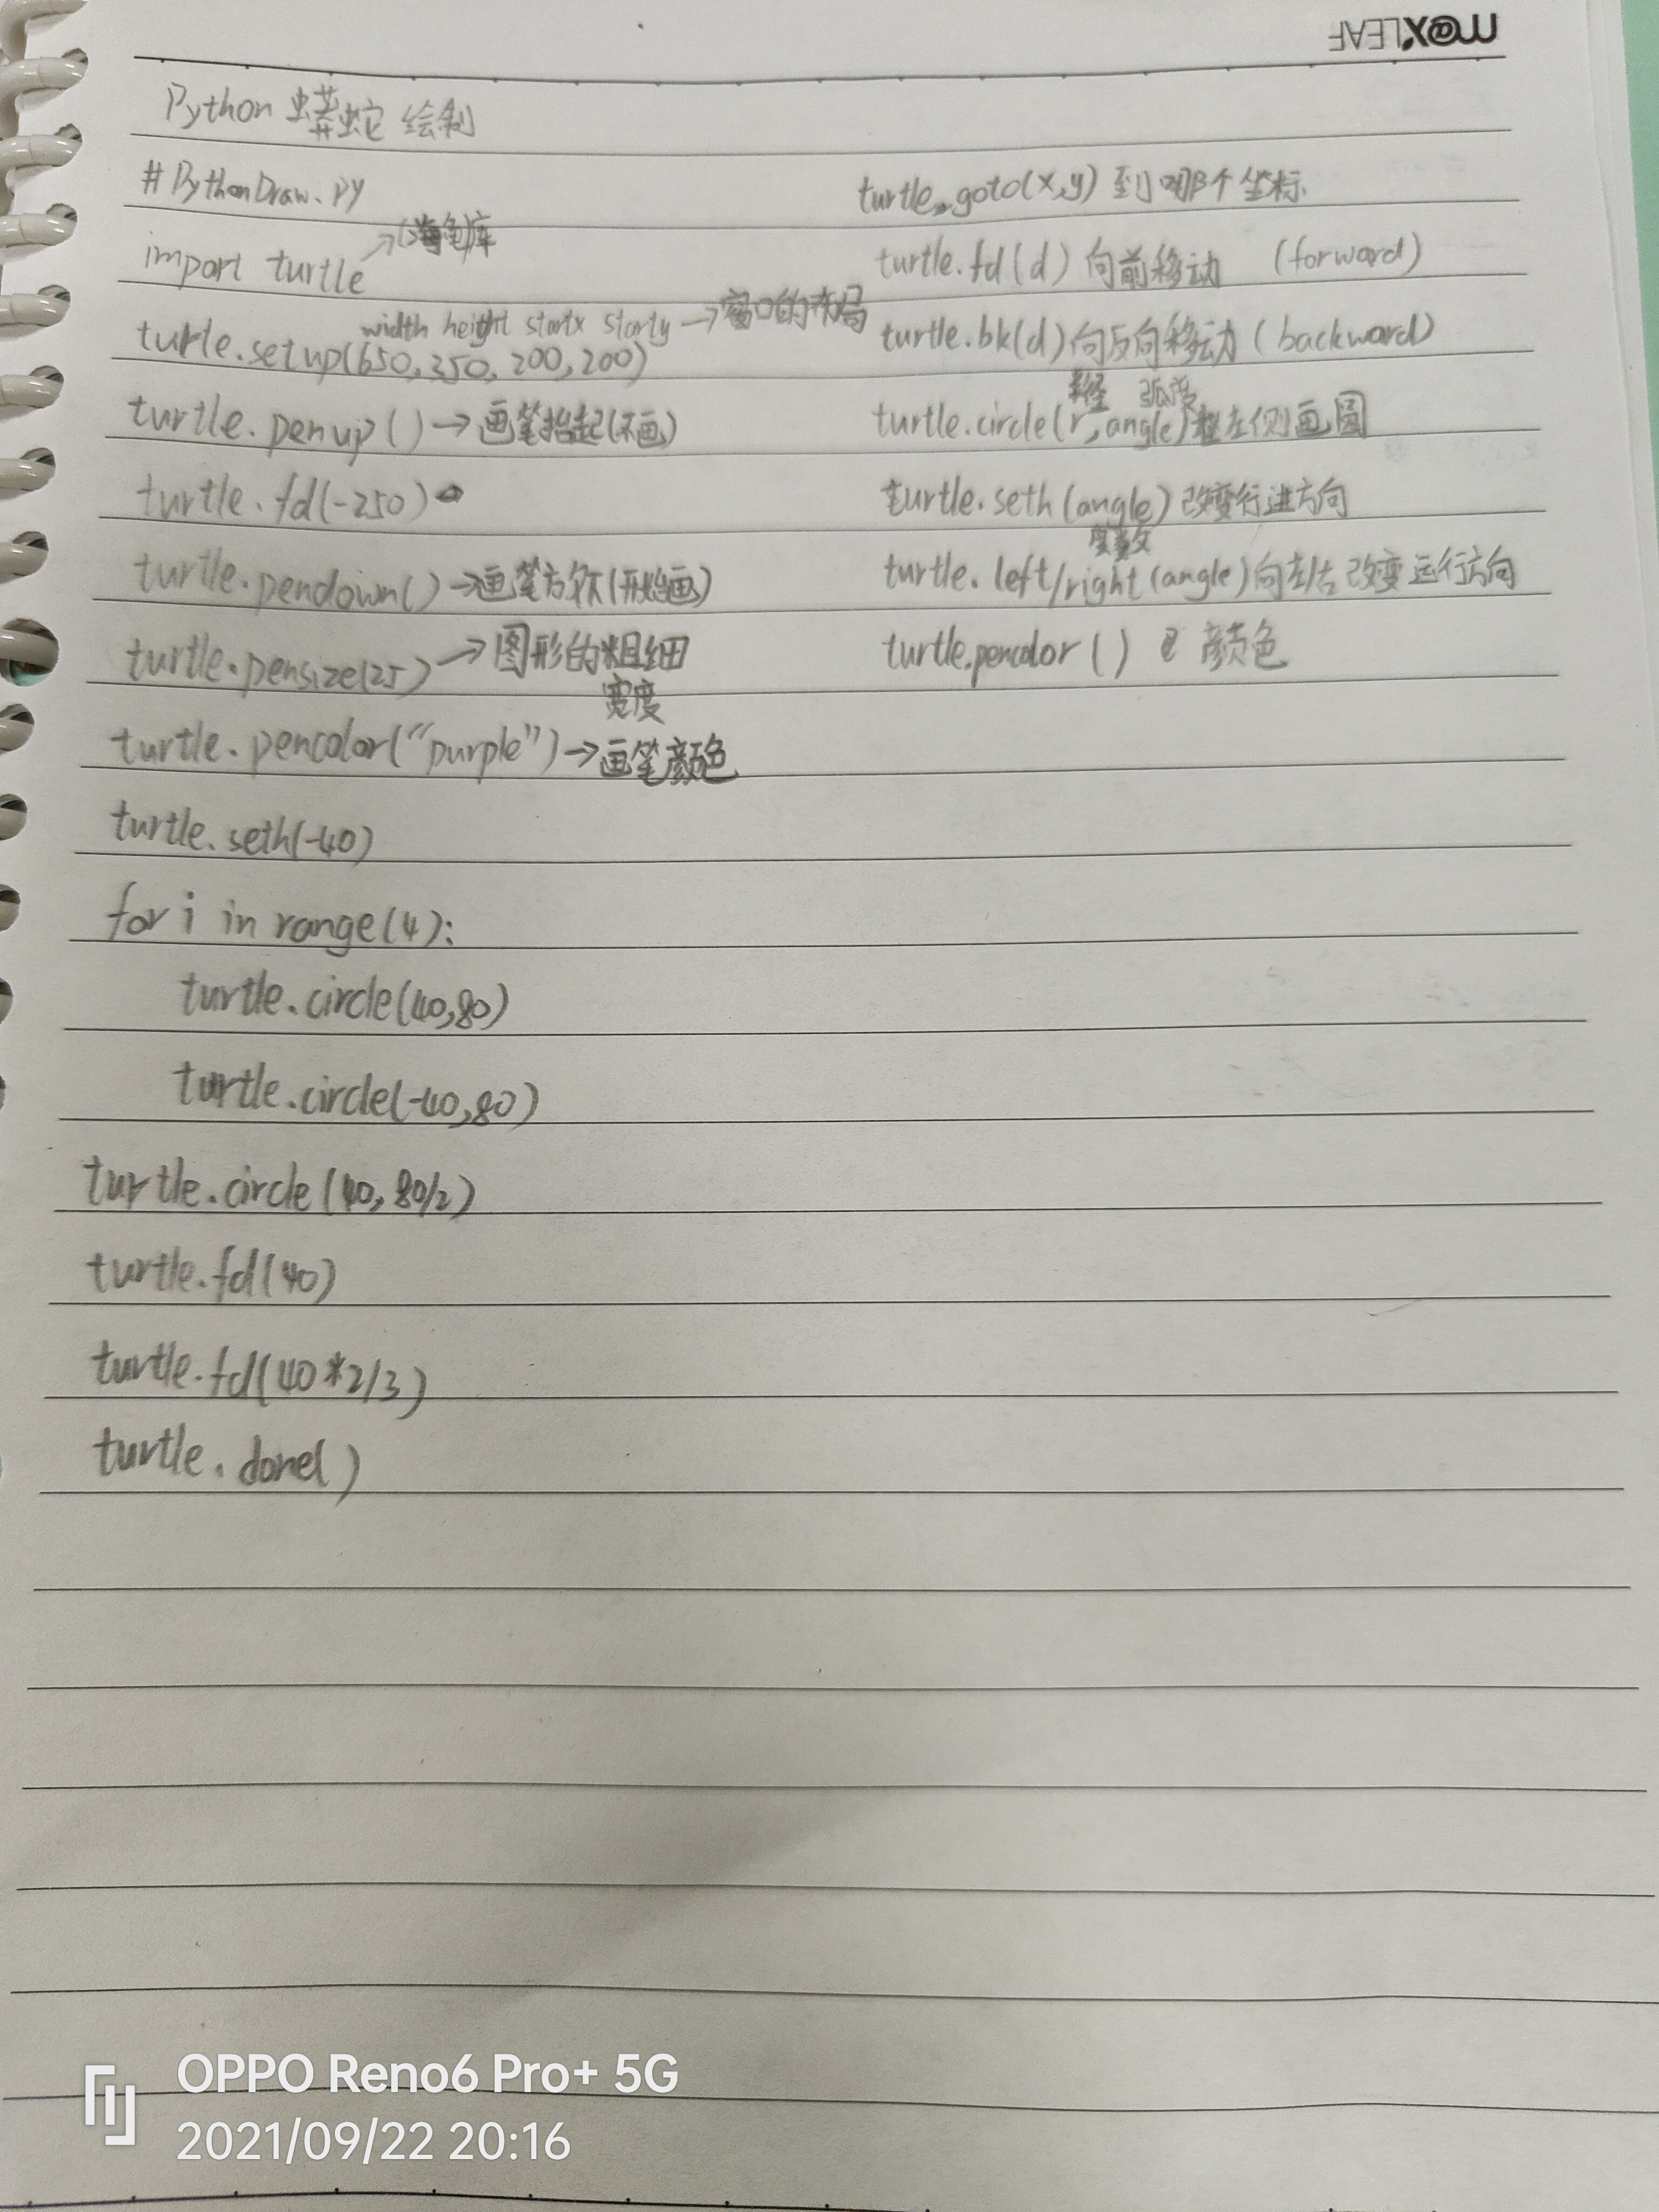 m@xLEAF
Python 蟒蛇 绘制
#PythonDraw.py
import turtle →(海龟)库
width height startx starty →窗口的布局
turtle.setup(650,350,200,200)
turtle.penup()→画笔抬起(不画)
turtle.fd(-250)
turtle.pendown()→画笔方欠下(开始画)
turtle.pensize(25)→图形的粗细
宽度
turtle.pencolor("purple")→画笔颜色
turtle.seth(-40)
for i in range(4):
turtle.circle(40,80)
turtle.circle(-40,80)
turtle.circle(40,80/2)
turtle.fd(40)
turtle.fd(40*2/3)
turtle.done()
turtle.goto(x,y) 到哪个坐标
turtle.fd(d) 向前移动 (forward)
turtle.bk(d)向反向移动(backward)
半径 弧度
turtle.circle(r,angle)左侧画圆
turtle.seth(angle)改变行进方向
度数
turtle.left/right(angle)向左/右改变运行方向
turtle.pencolor() 颜色
OPPO Reno6 Pro+ 5G
2021/09/22 20:16